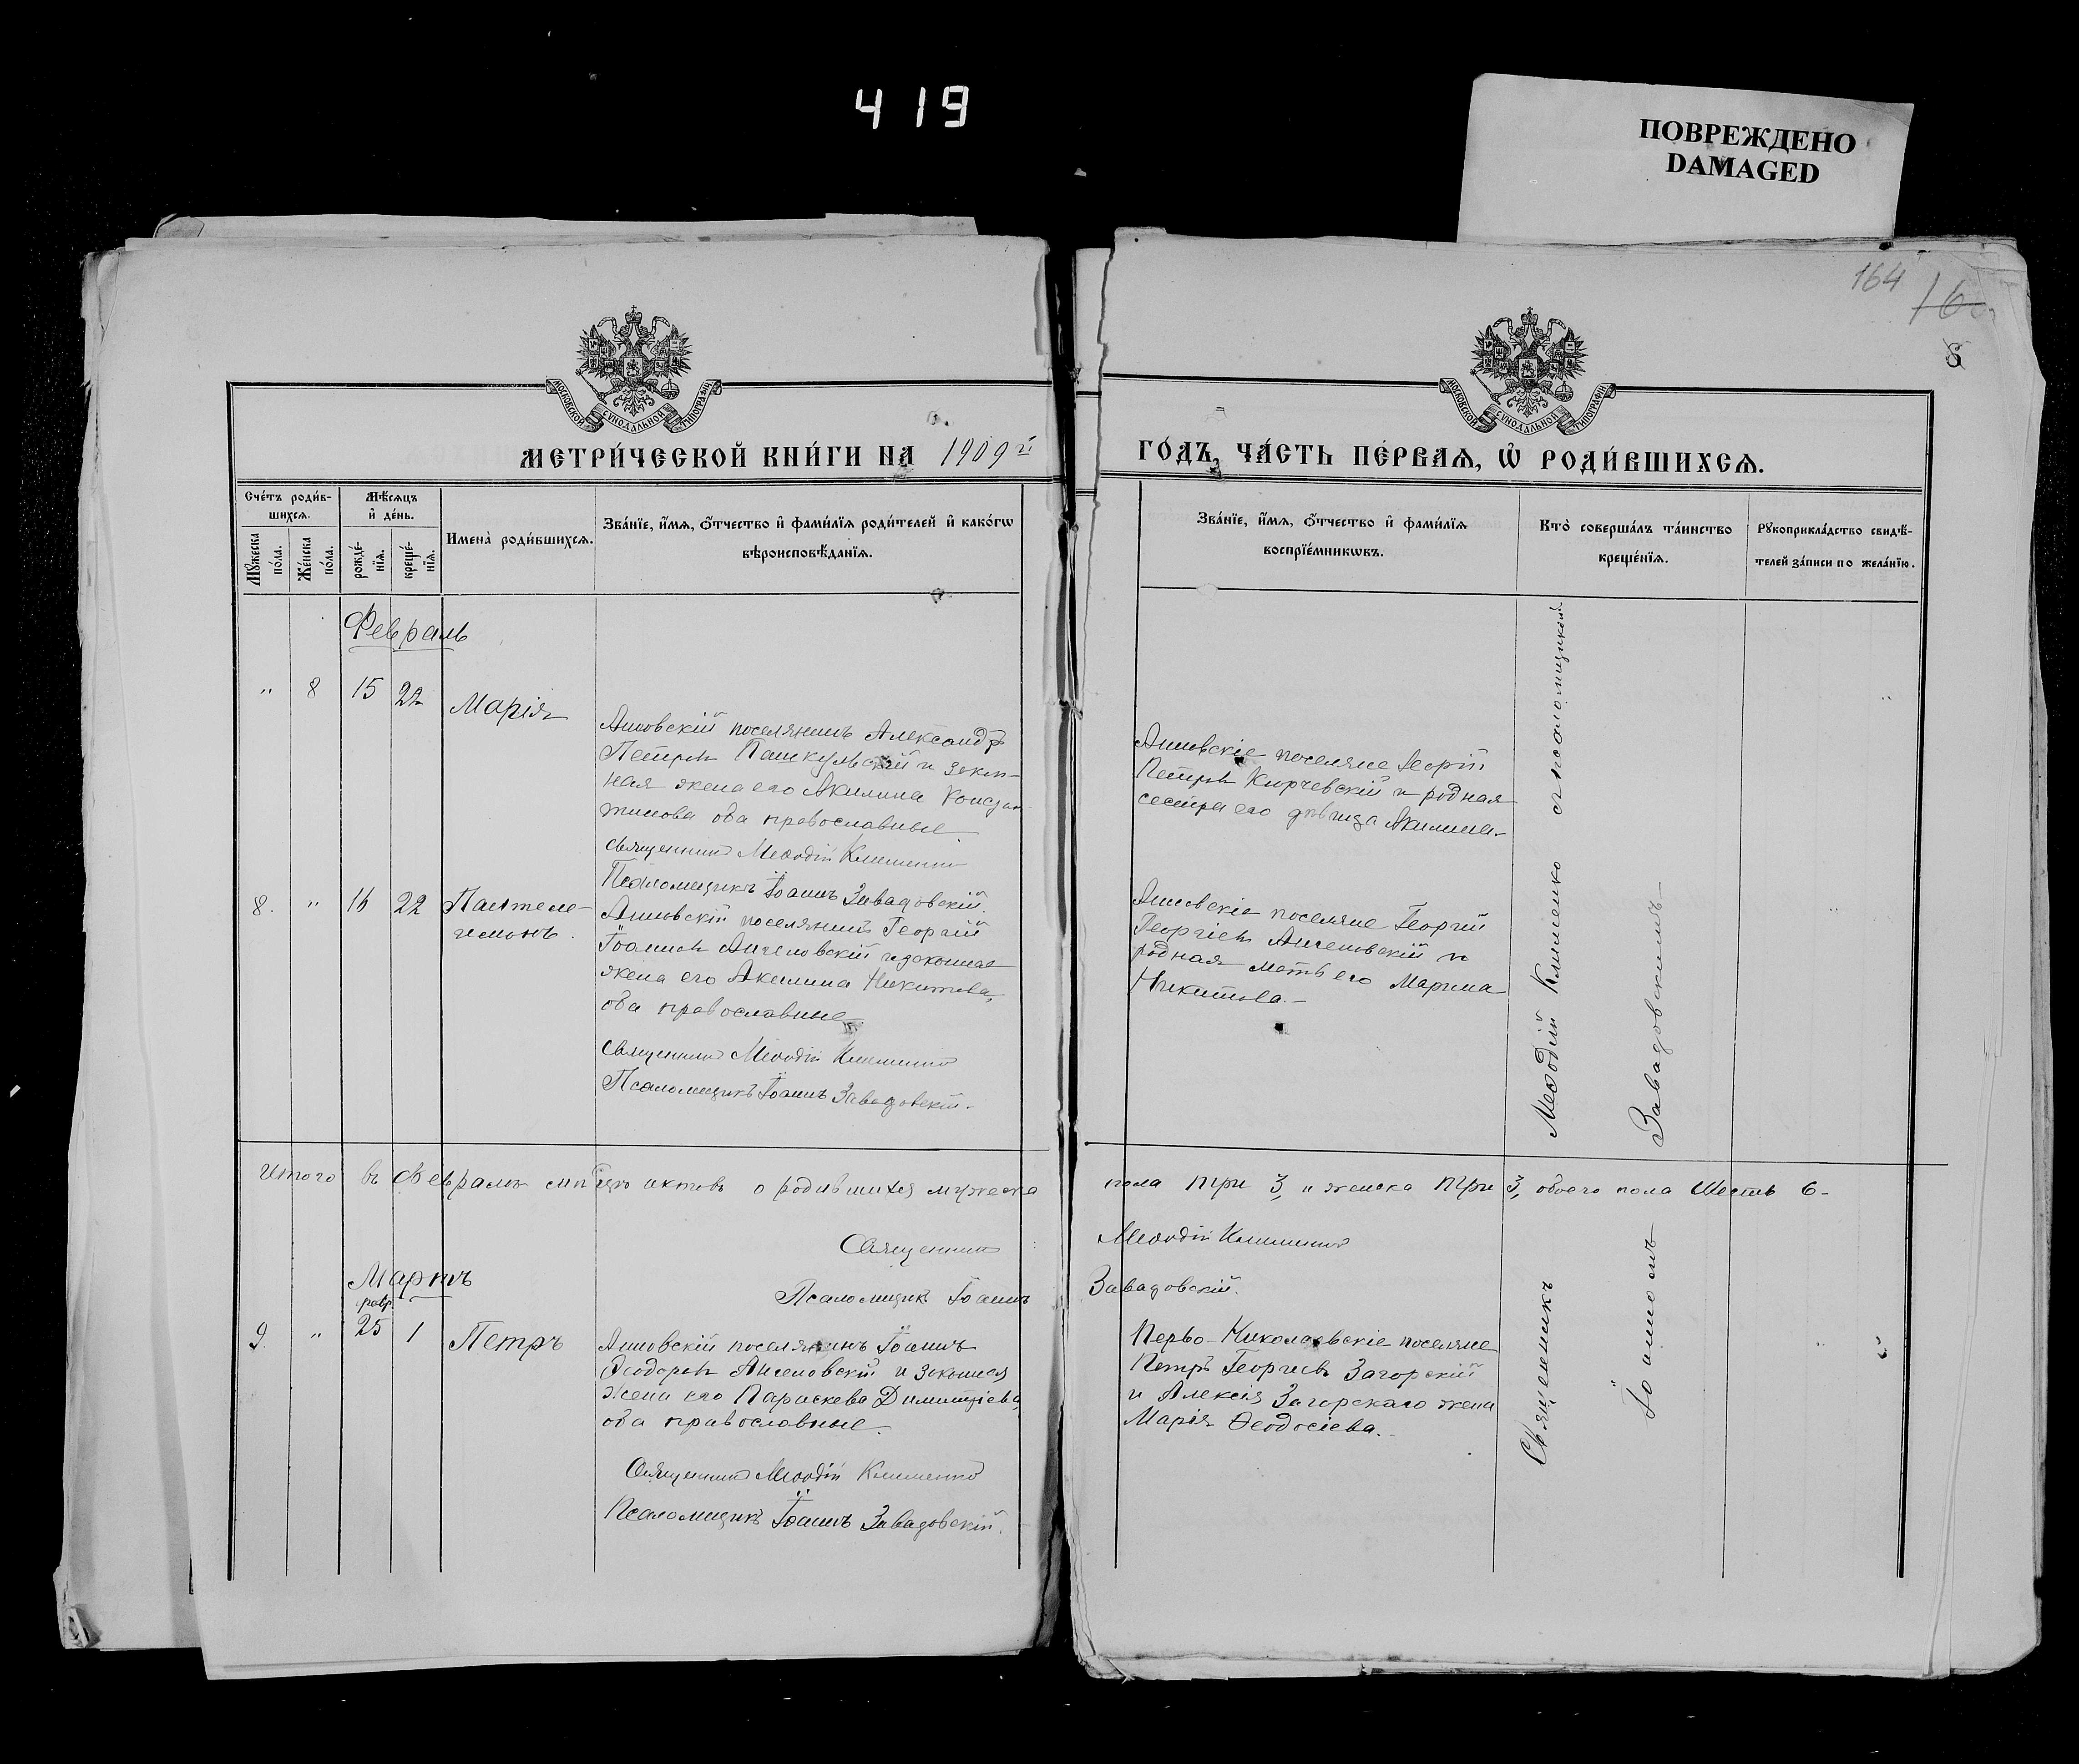 419
ПОВРЕЖДЕНО
DAMAGED
164
8
МОСКОВСКОЙ СѴНОДАЛЬНОЙ ТИПОГРАФІИ
МОСКОВСКОЙ СѴНОДАЛЬНОЙ ТИПОГРАФІИ
МЕТРИ́ЧЕСКОЙ КНИ́ГИ НА 1909й
ГО́ДЪ, ЧА́СТЬ ПЕ́РВАЯ, Ѡ РОДИ́ВШИХСЯ.
Сче́тъ роди́в-
шихся.
Мѣ́сяцъ
и де́нь.
Мꙋжеска по́ла.
Же́нска по́ла.
рожде́-
нїя.
креще́-
нїя.
Имена̀ роди́вшихся.
Зва́нїе, и́мя, ѻ́тчество и фами́лїя роди́телей и како́гѡ
вѣроисповѣ́данїя.
Зва́нїе, и́мя, ѻ́тчество и фами́лїя
воспрїе́мникѡвъ.
Кто̀ соверша́лъ та́инство
креще́нїя.
Рꙋкоприкла́дство свидѣ́-
телей за́писи по жела́нїю.
Февраль
" 8 15 22 Марія
поселянинъ Александръ
Петровъ Пашкульскій и закон-
ная жена его Акилина Констан-
тинова оба православные
Священникъ Меѳодій Клименко
Псаломщикъ Іоаннъ Завадовскій.
поселяне Георгій
Петровъ Кирчевскій и родная
сестра его дѣвица Акилина.-
8. " 16 22 Пантеле-
имонъ.
поселянинъ Георгій
Іоанновъ Ангеловскій и законная
жена его Акилина Никитова,
оба православные.
Священникъ Меѳодій Клименко
Псаломщикъ Іоаннъ Завадовскій.
поселяне Георгій
Георгіевъ Ангеловскій и
родная мать его Марина
Никитова.-
Итого въ Февралѣ мѣсяцѣ актовъ о родившихся мужеска
пола три 3, и женска три 3, обоего пола шесть 6-
Священникъ
Меѳодій Клименко
Псаломщикъ Іоаннъ
Завадовскій.
Мартъ
февр.
9. " 25 1 Петръ
поселянинъ Іоаннъ
Ѳеодоровъ Ангеловскій и законная
жена его Параскева Димитріева,
оба православные.
Священникъ Меѳодій Клименко
Псаломщикъ Іоаннъ Завадовскій.
Перво-Николаевскіе поселяне
Петръ Георгіевъ Загорскій
и Алексія Загорскаго жена
Марія Ѳеодосіева.-
Священникъ Меѳодій Клименко съ псаломщикомъ
Іоанномъ Завадовскимъ